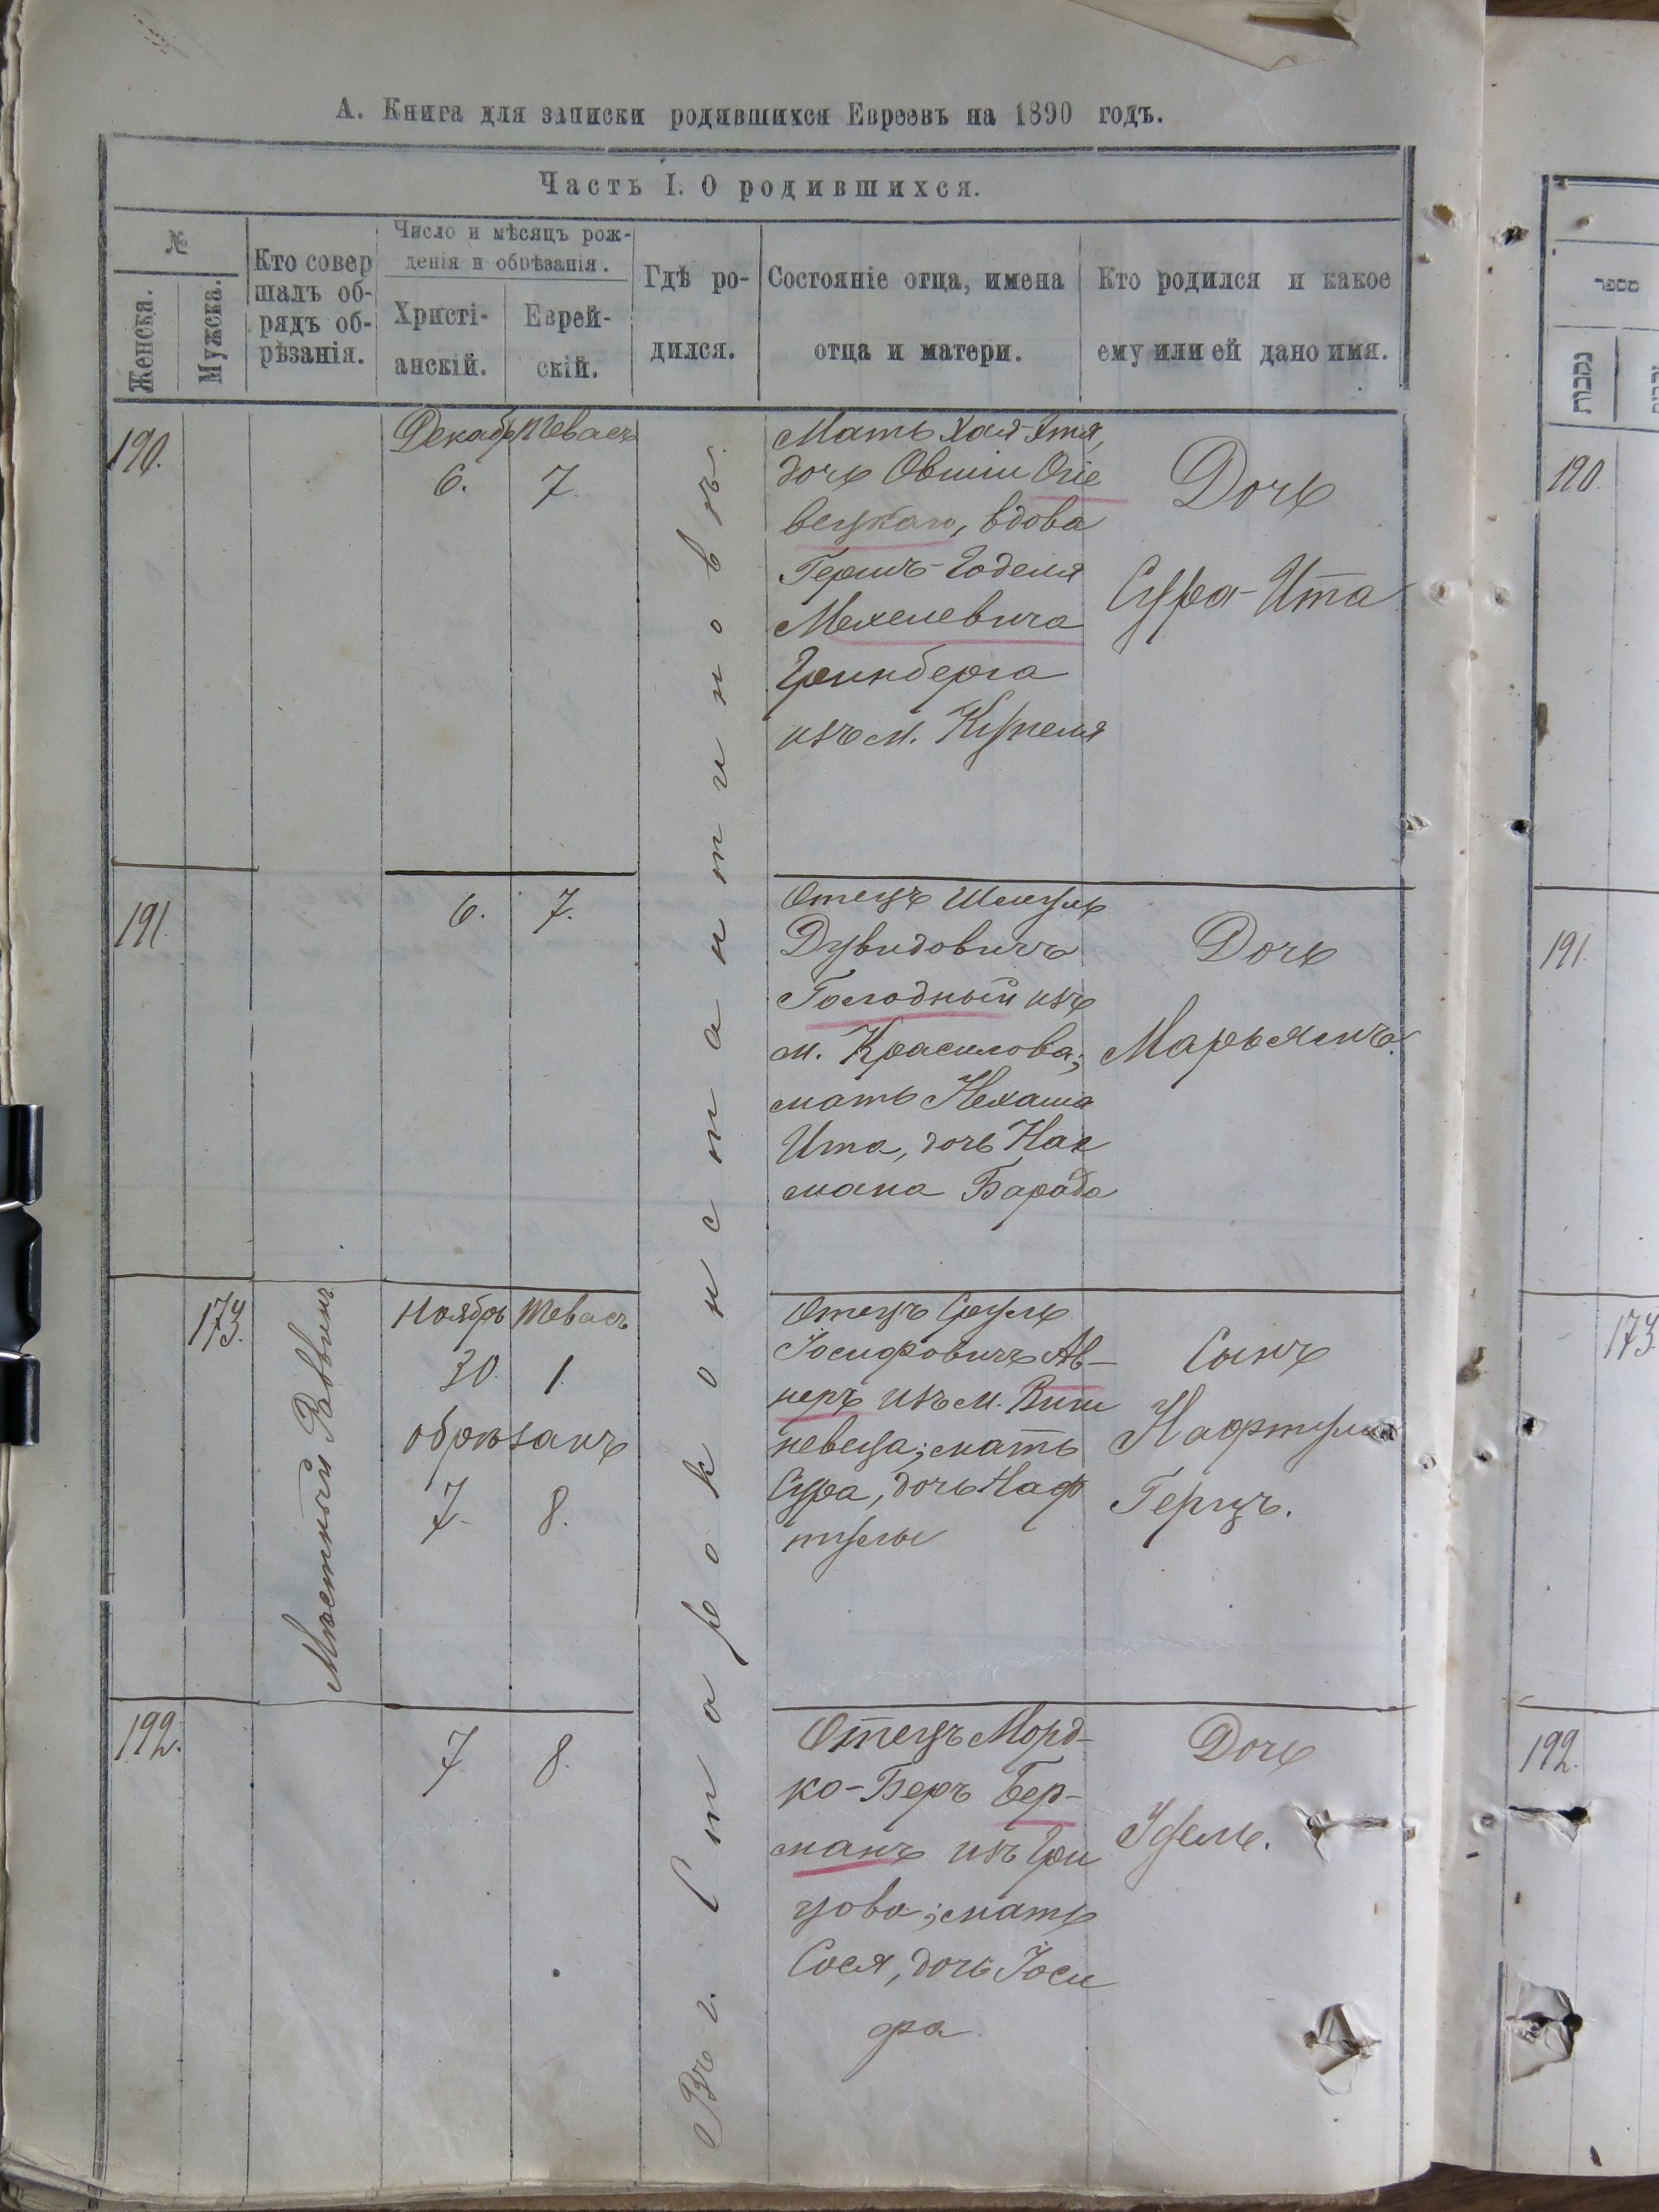 А. Книга для записки родившихся Евреевъ на 1890 годъ.
Часть I. О родившихся.
№
Женска.
Мужска.
Кто совер
шалъ об-
рядъ об-
рѣзанія.
Число и мѣсяцъ рож-
денія и обрѣзанія.
Христі-
анскій.
Еврей-
скій.
Гдѣ ро-
дился.
Состояніе отца, имена
отца и матери.
Кто родился и какое
ему или ей дано имя.
Въ г. Староконстантиновѣ.
190.
Декабр Тевасъ
6. 7.
Мать Хая-Этя,
дочь Овшии Огіе
вецкаго, вдова
Гершъ-Годеля
Мехелевича
Гринберга
изъ м. Купеля
Дочь
Сура-Ита
191.
6. 7.
Отецъ Шмуль
Дувидовичъ
Голодный изъ
м. Красилова;
мать Нехама
Ита, дочь Нах
мана Барада
Дочь
Марьямъ.
173.
Мѣстный Раввинъ
Ноябрь Тевасъ
30. 1.
обрѣзанъ
7. 8.
Отецъ Сруль
Іосифовичъ Ав-
неръ изъ м. Виш
невеца; мать
Сура, дочь Наф
тулы
Сынъ
Нафтула
Герцъ.
192.
7 8.
Отецъ Морд-
ко-Беръ Бер-
манъ изъ Гри
цова; мать
Сося, дочь Іоси
фа
Дочь
Удель.
מספר
נקבות
190.
191.
173
192.